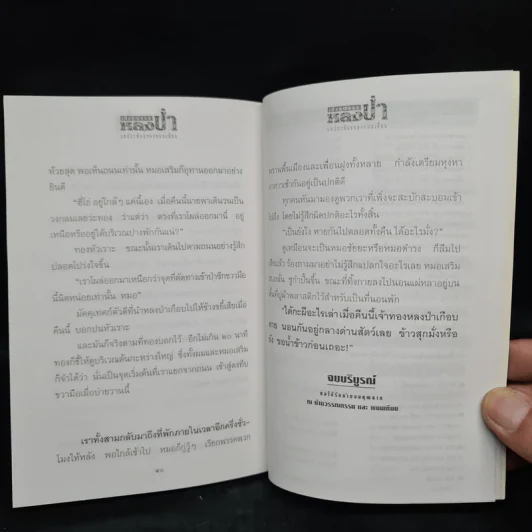 หลงป่า
ห้วยสุด พอเห็นถนนเท่านั้น หมอเสริมก็อุทานออกมาอย่าง
ยินดี
"ฮึโธ่ อยู่ใกล้ๆ แค่นี้เอง เมื่อคืนนี้นายพาเดินวนเป็น
วงกลมเลยว่ะทอง ว่าแต่ว่า ตรงที่เราโผล่ออกมานี้ อยู่
เหนือหรืออยู่ใต้บริเวณปางพักกันแน่?"
ทองหัวเราะ ขณะนั้นเราเดินไปตามถนนอย่างรู้สึก
ปลอดโปร่งใจขึ้น
"เราโผล่ออกมาเหนือกว่าจุดที่ตัดทางเข้าป่าซีกขวามือ
นี้นิดหน่อยเท่านั้น หมอ"
มัคคุเทศก์ตัวดีที่นำพาหลงป่าเกือบไปให้ช้างขยี้เสียเมื่อ
คืนนี้ บอกปนหัวเราะ
และมันก็จริงตามที่ทองบอกไว้ อีกไม่เกิน ๒๐ นาที
ทองก็ชี้ให้ดูบริเวณต้นกะหร่างใหญ่ ซึ่งทั้งผมและหมอเสริม
ก็จำได้ว่า นั่นเป็นจุดเริ่มต้นที่เราแยกจากถนน เข้าสู่ดงทึบ
ขวามือเมื่อบ่ายวานนี้
เราทั้งสามกลับมาถึงที่พักภายในเวลาอีกครึ่งชั่ว-
โมงให้หลัง พอใกล้เข้าไป หมอก็กู่วู้ๆ เรียกพรรคพวก
๒๐
หลงป่า
พรานพื้นเมืองและเพื่อนฝูงทั้งหลาย กำลังเตรียมหุงหา
อาหารเช้ากันอยู่เป็นปกติดี
ทุกคนหันมามองดูพวกเราที่เพิ่งจะสะบักสะบอมเข้า
โดยไม่รู้สึกผิดปกติอะไรทั้งสิ้น
"เป็นยังไง หายกันไปตลอดทั้งคืน ได้อะไรมั่ง?"
ดูเหมือนจะเป็นหมอชัยยะหรือหมอดำรง ก็ลืมไป
แล้ว ร้องถามมาอย่างไม่รู้สึกแปลกใจอะไรเลย หมอเสริม
ชูกำปั้นขึ้น ขณะที่ทิ้งกายลงไปนอนแผ่หลาอยู่บน
ผ้าพลาสติกไว้สำหรับเป็นที่นอนพัก
"ได้กะผีอะไรเล่า เมื่อคืนนี้เจ้าทองหลงป่าเกือบ
ตาย นอนกันอยู่กลางด่านสัตว์เลย ข้าวสุกมั่งหรือ
ยัง ขอน้ำข้าวก่อนเถอะ!"
จบบริบูรณ์
ณ บ้านวรรณกรรม และ